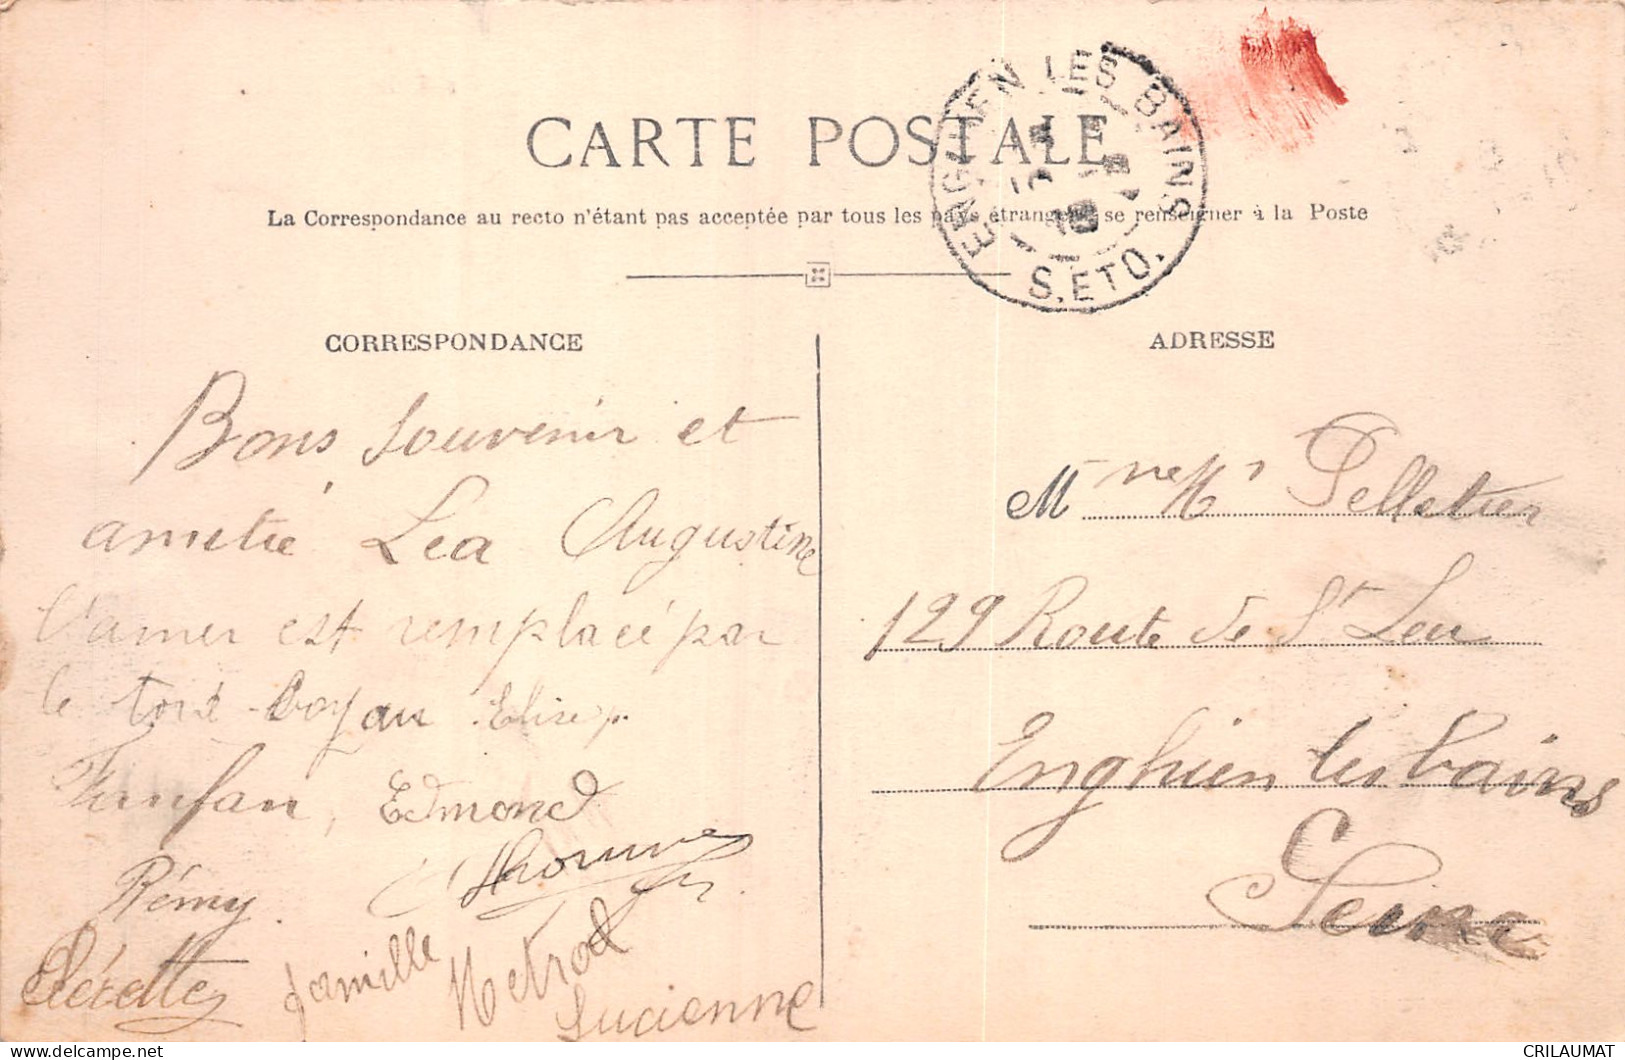 CARTE POSTALE
La Correspondance au recto n'étant pas acceptée par tous les pays étrangers, se renseigner à la Poste
ENGHIEN LES BAINS
S. ET O.
CORRESPONDANCE
Bons Souvenir et
amitié Lea Augustine
l'amer est remplacé par
le tord-boyau Elise
Fanfan, Edmond
Rémy.
famille
Lucienne
ADRESSE
M me Mr Pelletier
129 Route de St Leu
Enghien les bains
Seine
CRILAUMAT